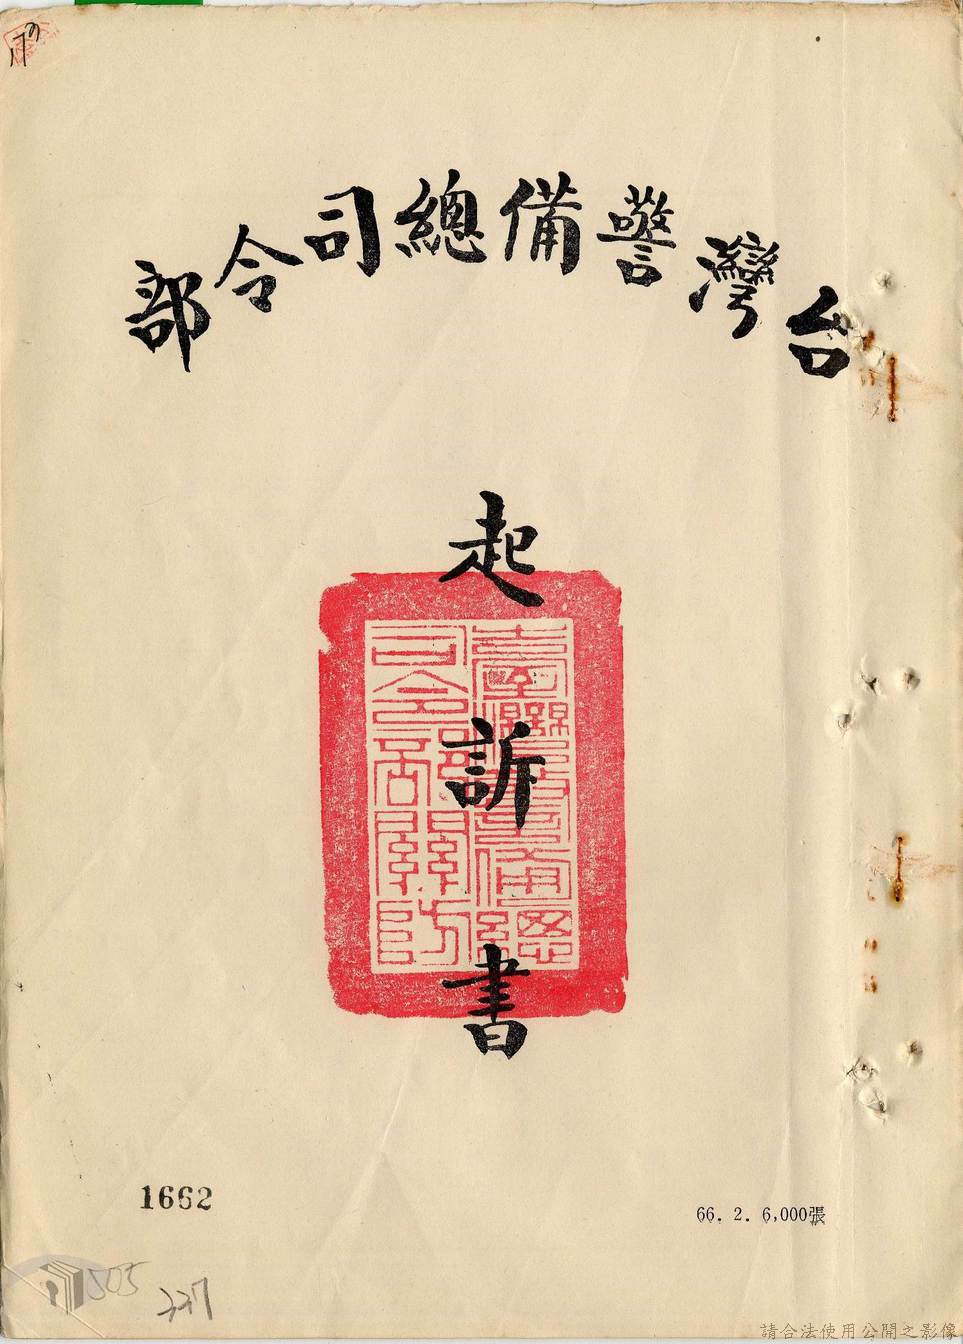 台灣警備總司令部
起訴書
臺灣警備總
司令部關防
1662
66. 2. 6,000張
505
請合法使用公開之影像